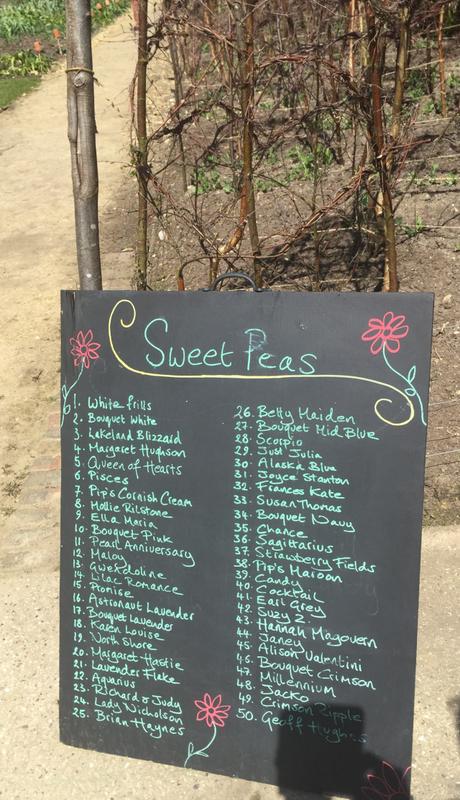 Sweet Peas
1. White frills
2. Bouquet White
3. Lakeland Blizzard
4. Margaret Hughson
5. Queen of Hearts
6. Pisces
7. Pip's Cornish Cream
8. Mollie Rilstone
9. Ella Maria
10. Bouquet Pink
11. Pearl Anniversary
12. Maloy
13. Gwendoline
14. Lilac Romance
15. Promise
16. Astronaut Lavender
17. Bouquet Lavender
18. Karen Louise
19. North Shore
20. Margaret Hastie
21. Lavender Flake
22. Aquarius
23. Richard & Judy
24. Lady Nicholson
25. Brian Haynes
26. Betty Maiden
27. Bouquet Mid Blue
28. Scorpio
29. Just Julia
30. Alaska Blue
31. Joyce Stanton
32. Frances Kate
33. Susan Thomas
34. Bouquet Navy
35. Chance
36. Sagittarius
37. Strawberry Fields
38. Pip's Maroon
39. Candy
40. Cocktail
41. Earl Grey
42. Suzy Z.
43. Hannah Magovern
44. Janey
45. Alison Valentini
46. Bouquet Crimson
47. Millennium
48. Jacko
49. Crimson Ripple
50. Geoff Hughes